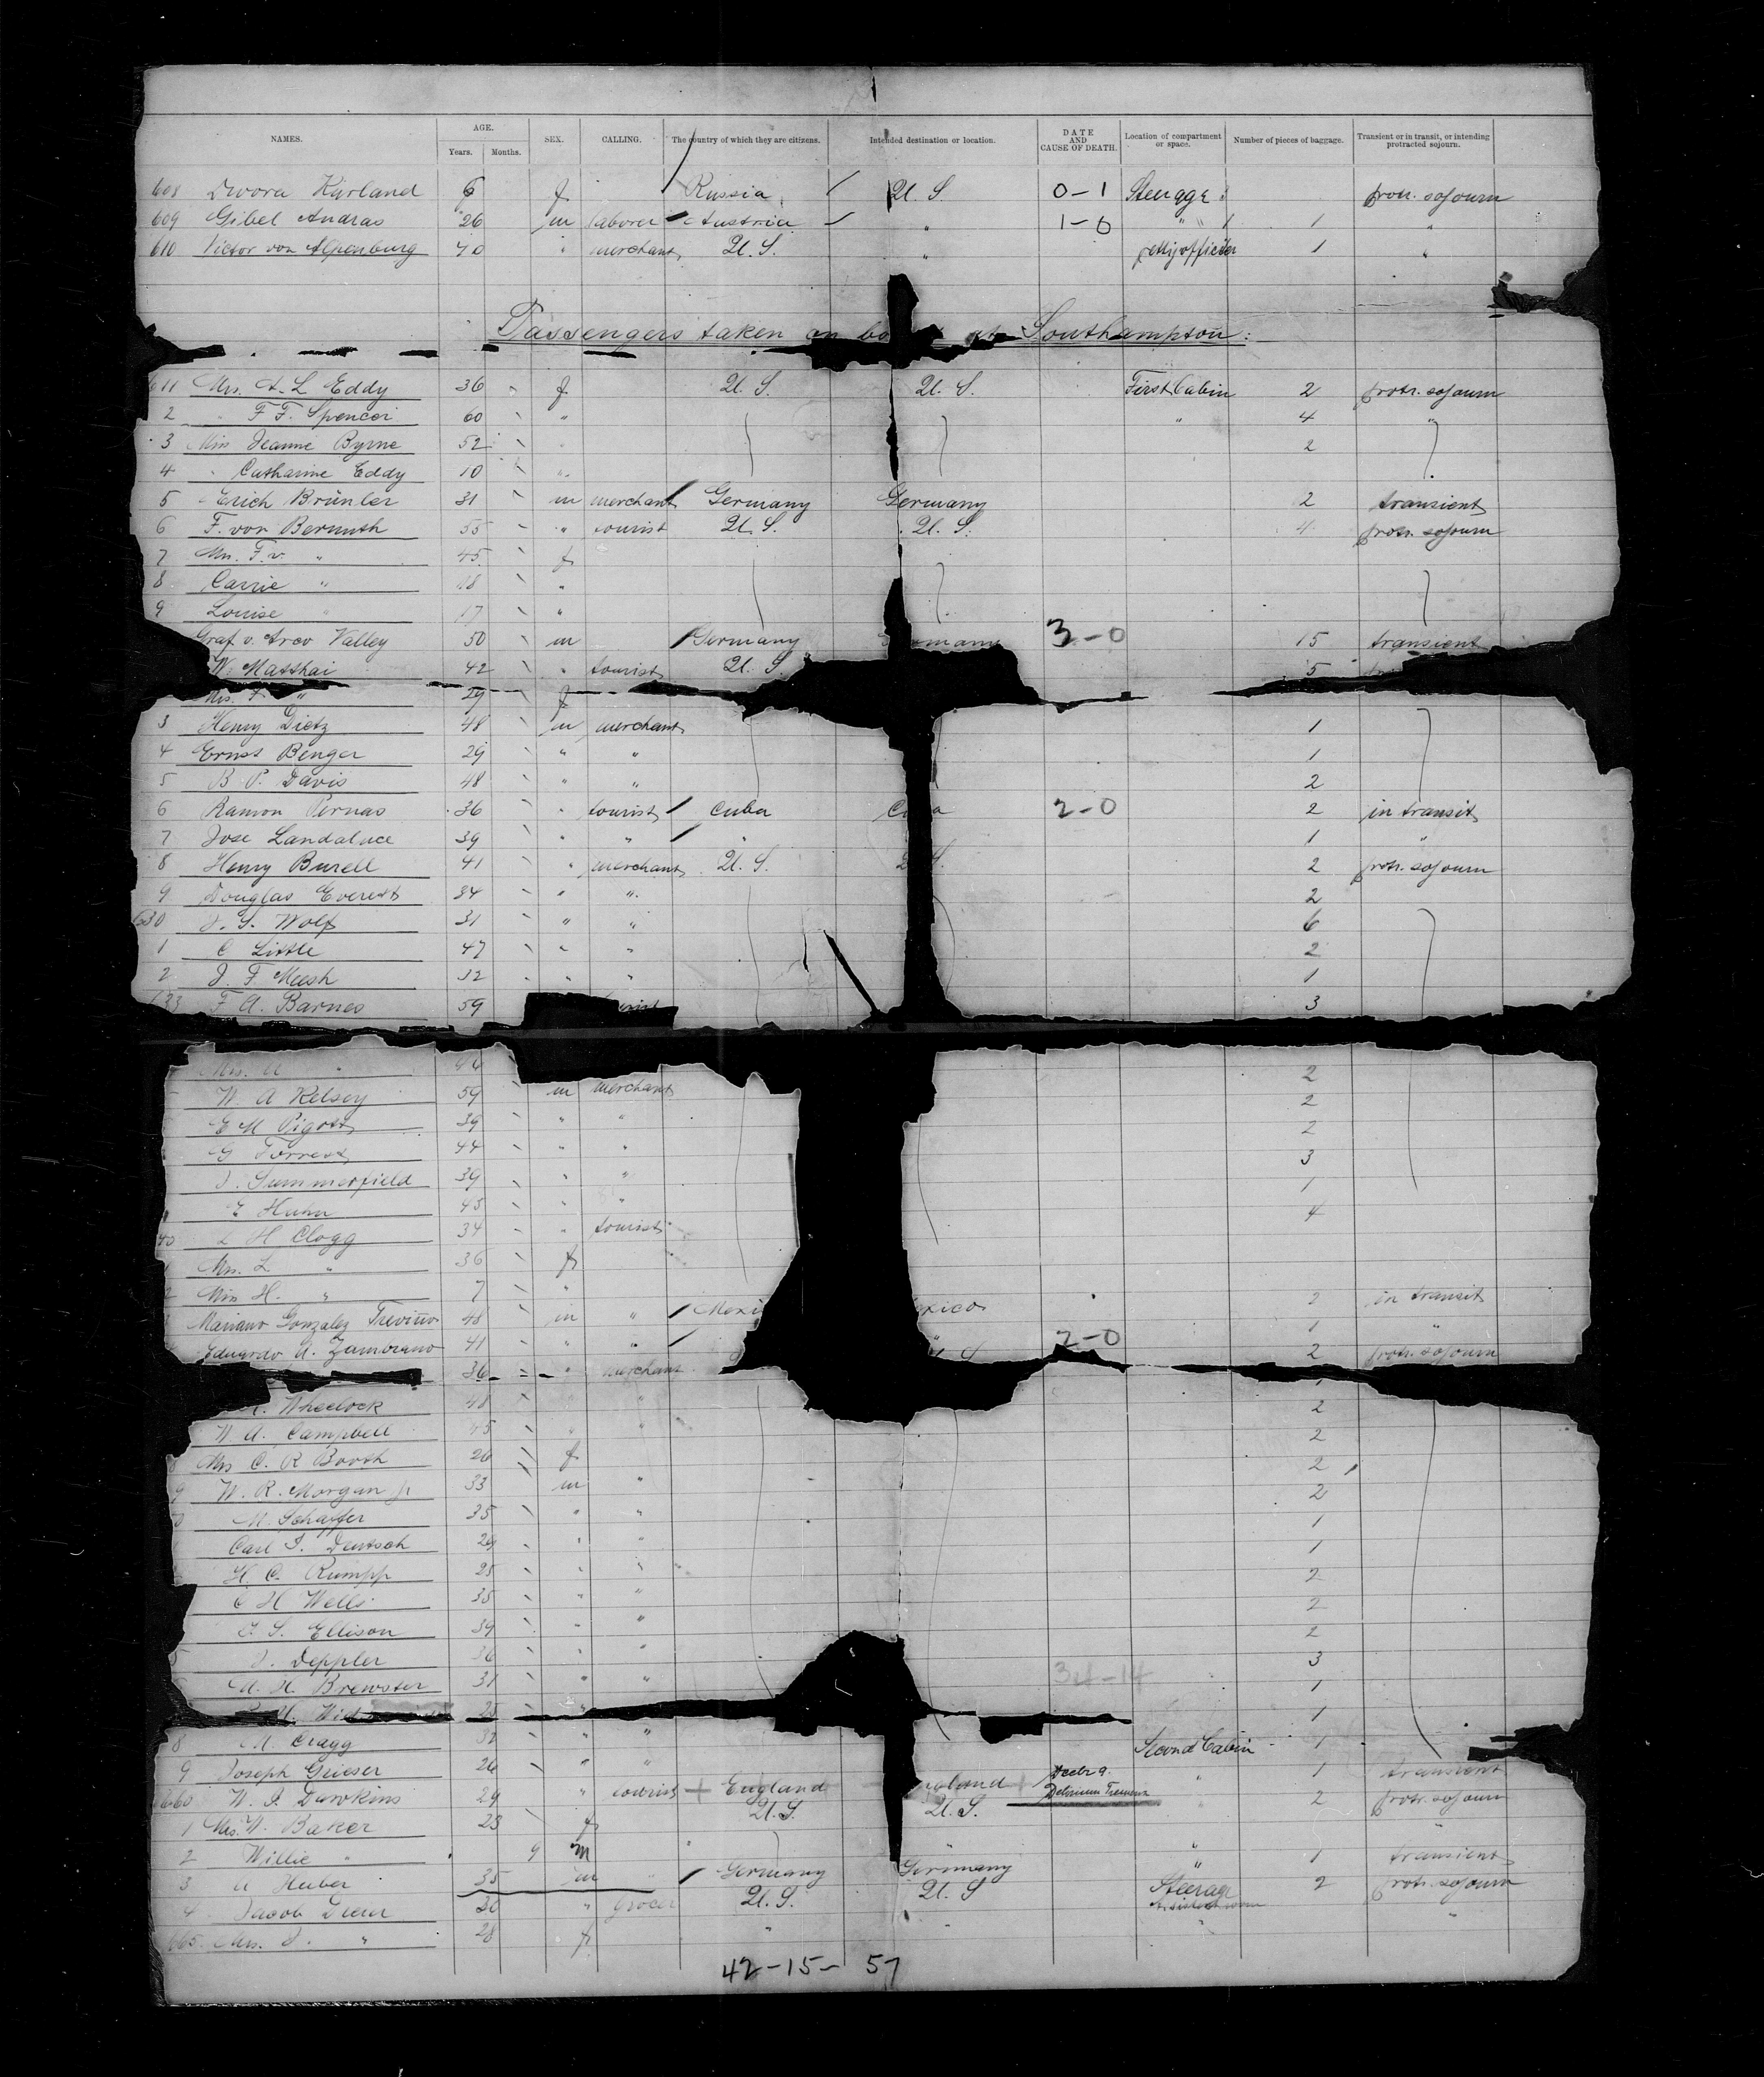 NAMES. AGE. Years. Months. SEX. CALLING. The country of which they are citizens. Intended destination or location. DATE AND CAUSE OF DEATH. Location of compartment or space. Number of pieces of baggage. Transient or in transit, or intending protracted sojourn.
608 Dwora Kurland 6 f Russia U. S. 0-1 Steerage protr. sojourn
609 Gibel Andras 26 m laborer Austria " 1-0 " 1 1 "
610 Victor von Alpenburg 40 " merchant U. S. " petty officer 1 "
Passengers taken on bo at Southampton:
611 Mrs. A. L Eddy 36 f U. S. U. S. First Cabin 2 protr. sojourn
2 " F F. Spencer 60 " " 4 "
3 Miss Jeanne Byrne 52 " 2
4 " Catharine Eddy 10 "
5 Erich Brünler 31 m merchant Germany Germany 2 transient
6 F. von Bernuth 55 " tourist U. S. U. S. 4 protr. sojourn
7 Mrs. F. v. " 45 f
8 Carrie " 18 "
9 Louise " 17 "
Graf v. Arco Valley 50 m Germany many 3-0 15 transient
W. Matthai 42 " tourist U. S 5
Mrs. F. " 29 f
3 Henry Dietz 48 m merchant 1
4 Ernst Benger 29 " " 1
5 B. P. Davis 48 " " 2
6 Ramon Pernas 36 " tourist Cuba C a 2-0 2 in transit
7 Jose Landaluce 39 " " " 1 "
8 Henry Burell 41 " merchant U. S. S. 2 protr. sojourn
9 Douglas Everest 34 " " 2
630 J. S. Wolf 31 " " 6
1 C Little 47 " " 2
2 J. F Meesh 32 " " 1
633 F. A. Barnes 59 3
Mrs. A " 46 2
W. A Kelsey 59 m merchant 2
E M Pigott 39 " " 2
G Forrest 44 " " 3
J. Summerfield 39 " " 1
E Huhn 43 " " 4
40 L H Clogg 34 " tourist
1 Mrs. L " 36 f
2 Miss H. " 7 "
3 Mariano Gonzalez Trevino 48 m " Mexi xico 2 in transit
Eduardo A. Zamorano 41 " " 2-0 1 "
36 " merchant 2 protr. sojourn
Wheelock 48 " 2
W. A. Campbell 45 " " 2
8 Mrs C. R Booth 26 f 2
9 W. R. Morgan jr 33 m " 2
M. Schaffer 35 " " 1
Carl F. Deutsch 29 " " 1
H. C. Rumpp 25 " " 2
C H Wells 35 " " 2
T. S. Ellison 39 " " 2
5 J. Deppler 36 " " 3
A. H. Brewster 31 " " 34-14 1
25 " 1
8 M. Cragg 32 " " Second Cabin 1
9 Joseph Grieser 26 " " " 1 transient
660 W. J. Dawkins 29 " tourist England gland Decbr 9. Delirium Tremens " 2 protr. sojourn
1 Mrs. W. Baker 23 f U. S. U. S. "
2 Willie " 9 m " 1 transient
3 A Huber 35 m " Germany Germany " 2 protr. sojourn
4 Jacob 30 " grocer U. S. U. S Steerage "
665 Mrs. J. " 28 f " "
42-15- 57